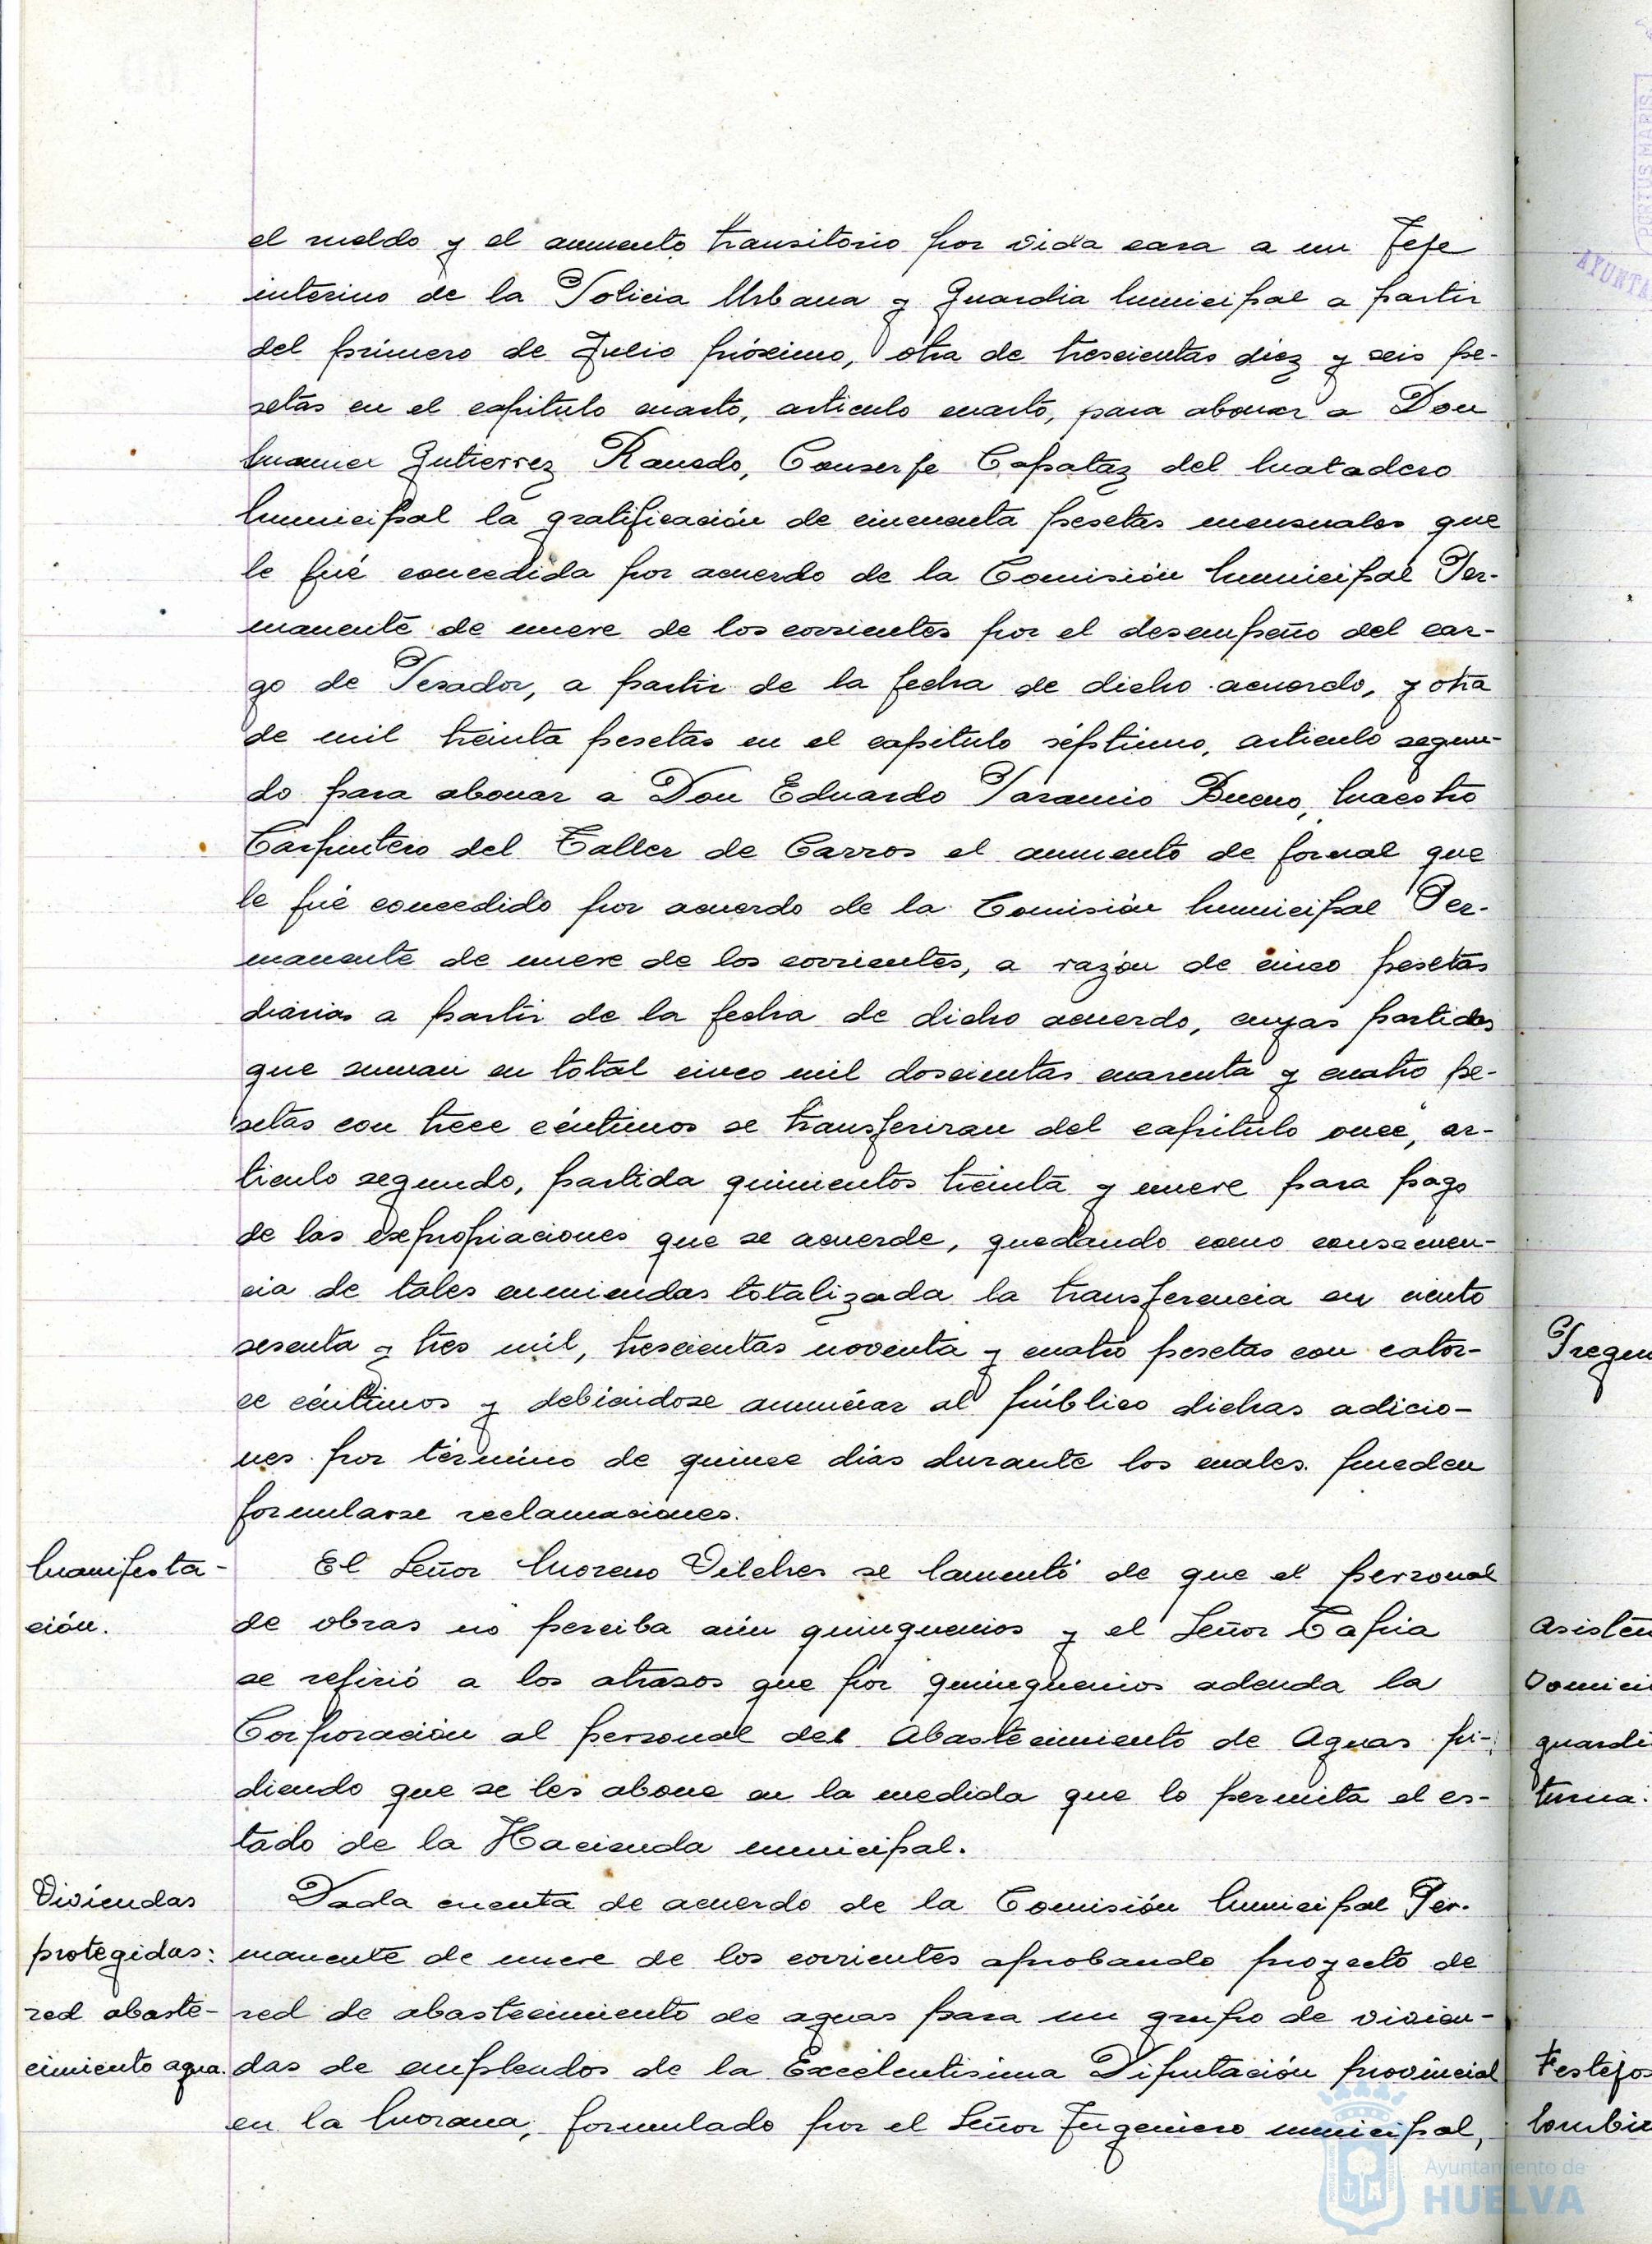 el sueldo y el aumento transitorio por vida cara a un Jefe
interino de la Policia Urbana y Guardia Municipal a partir
del primero de Julio próximo, otra de trescientas diez y seis pe-
setas en el capitulo cuarto, articulo cuarto, para abonar a Don
Manuel Gutierrez Ranedo, Conserje Capataz del Matadero
Municipal la gratificación de cincuenta pesetas mensuales que
le fué concedida por acuerdo de la Comisión Municipal Per-
manente de nueve de los corrientes por el desempeño del car-
go de Pesador, a partir de la fecha de dicho acuerdo, y otra
de mil treinta pesetas en el capitulo séptimo, articulo segun-
do para abonar a Don Eduardo Paramio Bueno, Maestro
Carpintero del Taller de Carros el aumento de jornal que
le fué concedido por acuerdo de la Comisión Municipal Per-
manente de nueve de los corrientes, a razón de cinco pesetas
diarias a partir de la fecha de dicho acuerdo, cuyas partidas
que suman en total cinco mil doscientas cuarenta y cuatro pe-
setas con trece céntimos se transferiran del capitulo once, ar-
ticulo segundo, partida quinientos treinta y nueve para pago
de las expropiaciones que se acuerde, quedando como consecuen-
cia de tales enmiendas totalizada la transferencia en ciento
sesenta y tres mil, trescientas noventa y cuatro pesetas con cator-
ce céntimos y debiéndose anunciar al público dichas adicio-
nes por término de quince dias durante los cuales pueden
formularse reclamaciones.
Manifesta-
ción.
El Señor Moreno Vilches se lamentó de que el personal
de obras no perciba aún quinquenios y el Señor Tapia
se refirió a los atrasos que por quinquenios adeuda la
Corporación al personal del Abastecimiento de Aguas pi-
diendo que se les abone en la medida que lo permita el es-
tado de la Hacienda municipal.
Viviendas
protegidas:
red abaste-
cimiento agua.
Dada cuenta de acuerdo de la Comisión Municipal Per-
manente de nueve de los corrientes aprobando proyecto de
red de abastecimiento de aguas para un grupo de vivien-
das de empleados de la Excelentisima Diputación provincial
en la Morana, formulado por el Señor Ingeniero municipal,
AYUNTA
Pregun
Asisten
Domici
guardi
turna.
Festejos
Ayuntamiento de
HUELVA